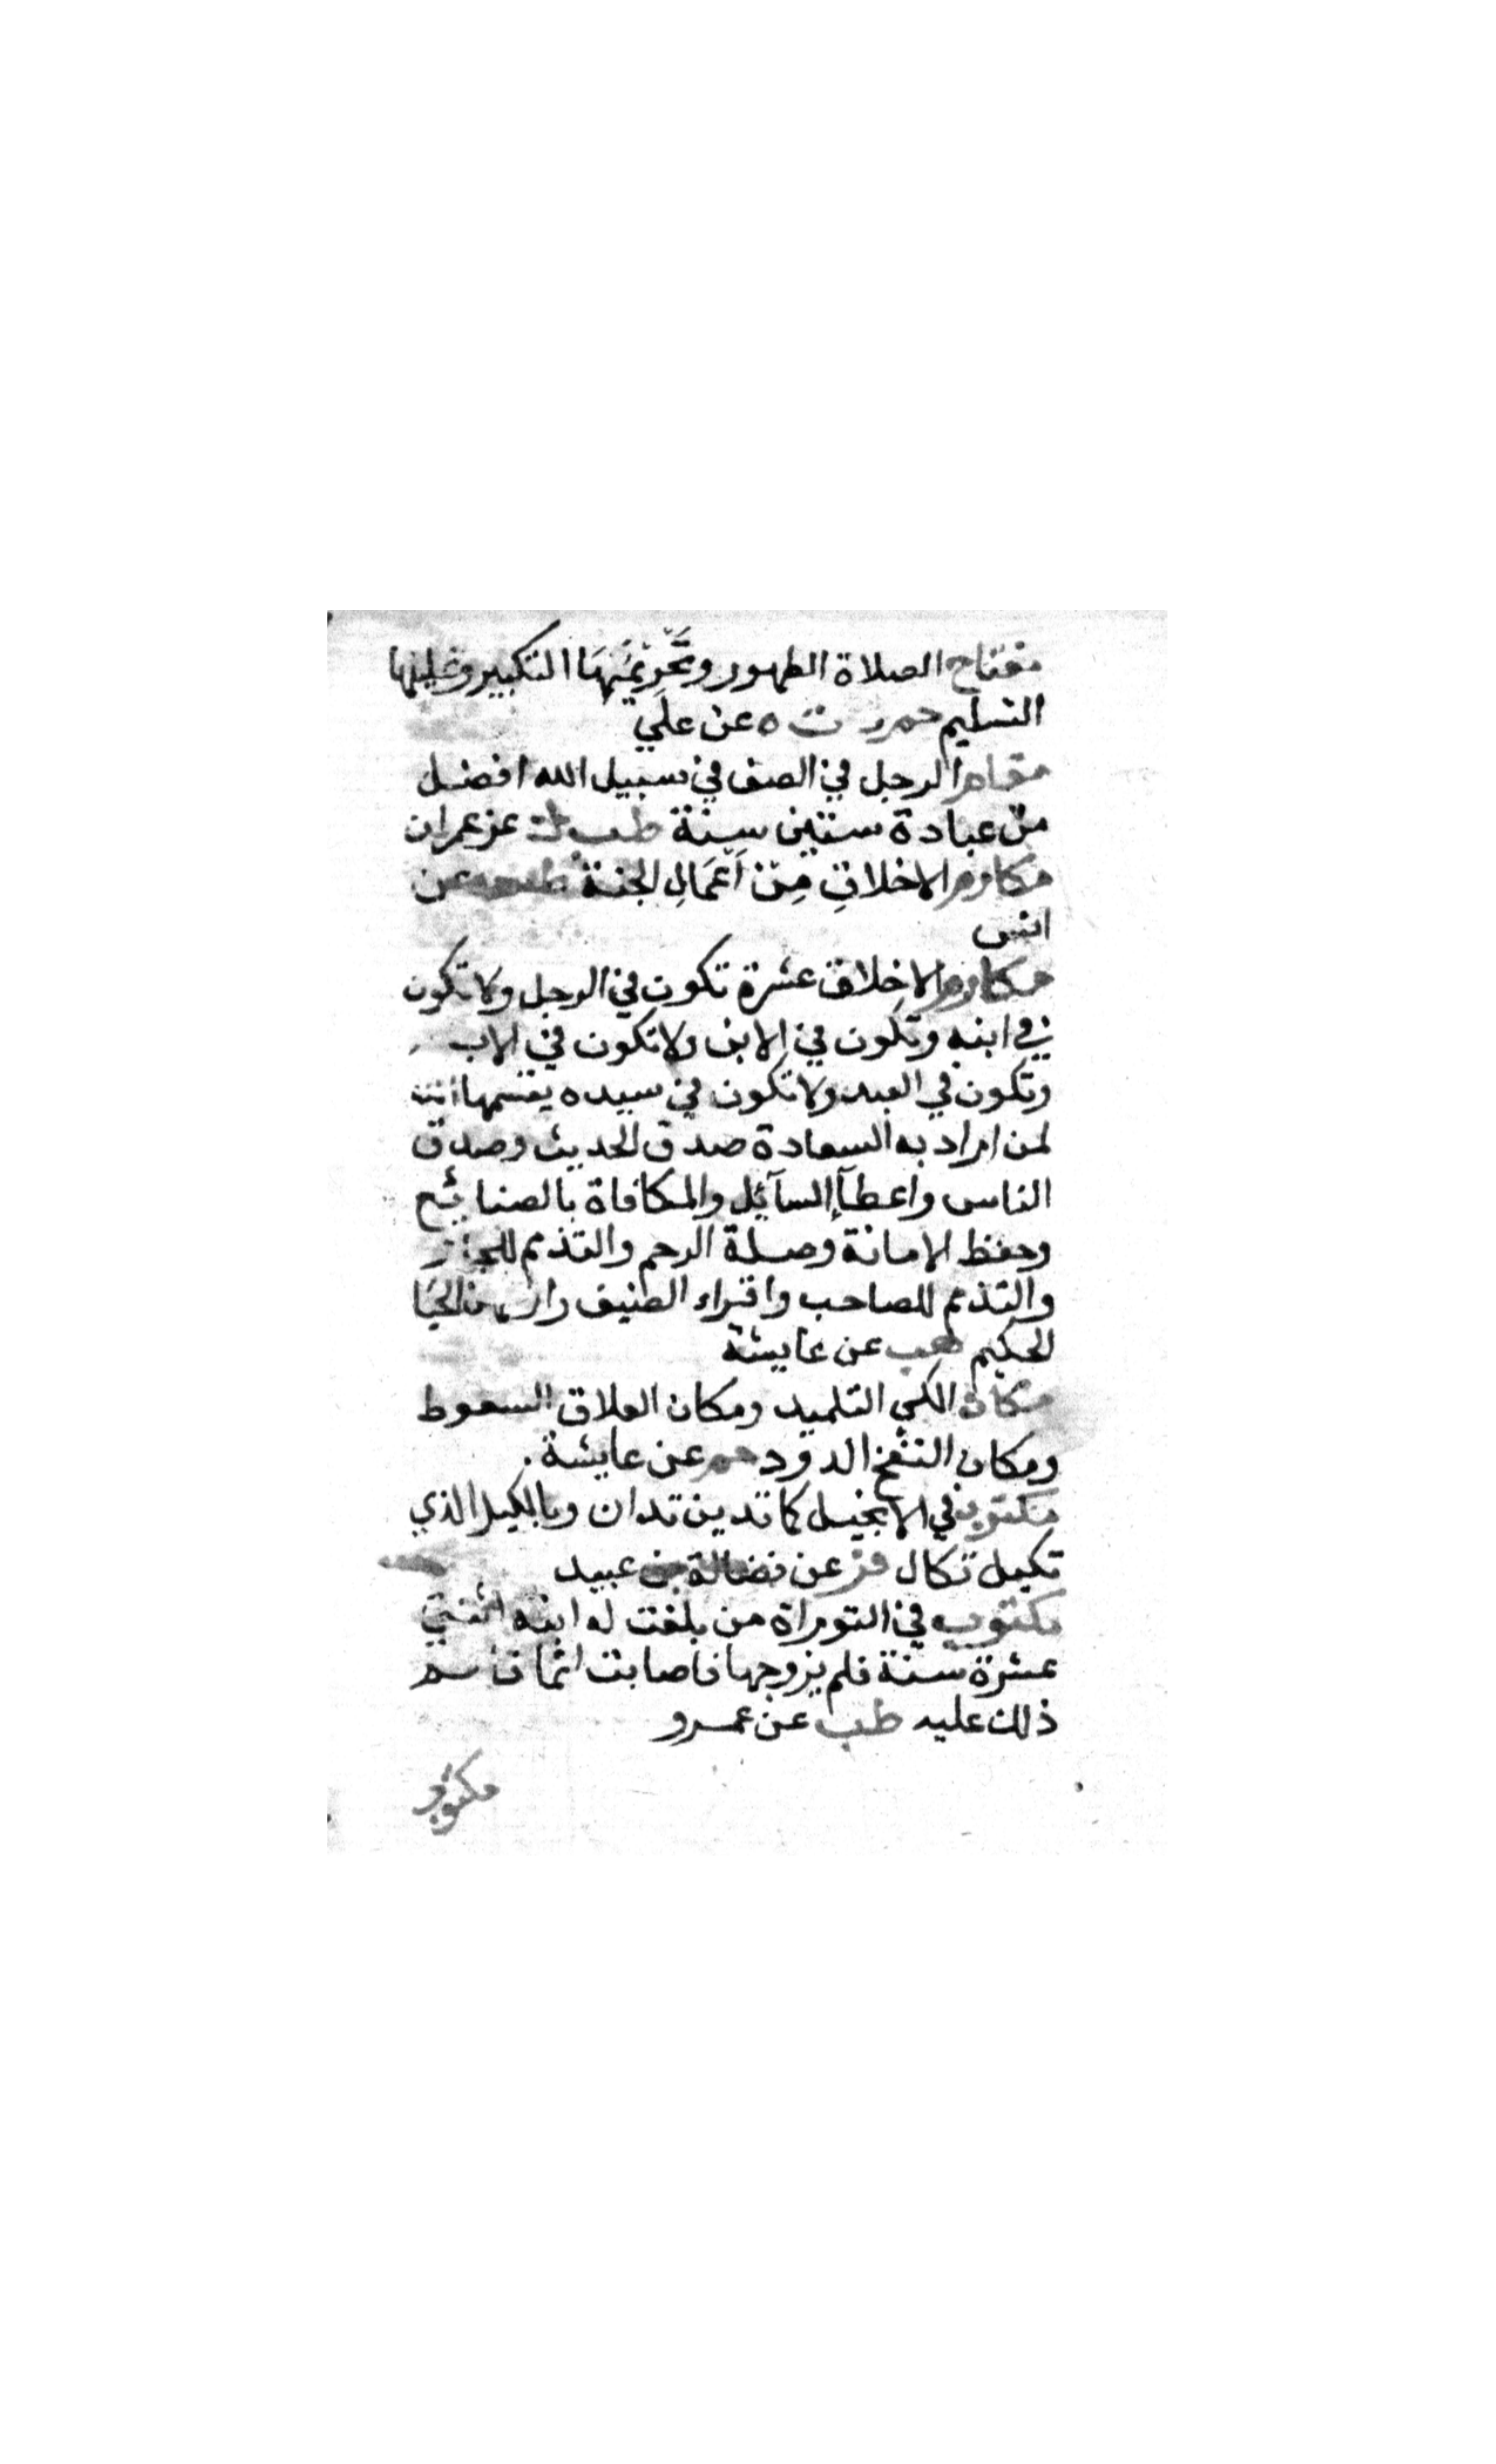 مفتاح الصلاة الطهور وتَحْرِيمُهَا التكبير وتحليلها
التسليم حم د ت ه عن علي
مقام الرجل في الصف في سبيل الله افضل
من عبادة ستين سنة طب ك عن عمران
مكارم الاخلاقِ مِن أَعمَالِ الجنة طس عن
انس
مكارم الاخلاق عشرة تكون في الرجل ولا تكون
في ابنه وتكون في الابن ولا تكون في الاب
وتكون في العبد ولا تكون في سيده يقسمها الله
لمن اراد به السعادة صدق الحديث وصدق
الناس واعطآء السآئل والمكافاة بالصنائع
وحفظ الامانة وصلة الرحم والتذمم للجار
والتذمم للصاحب واقراء الضيف وراسهن الحيا
الحكيم هب عن عايشة
مكان الكي التلميد ومكان العلاق السعوط
ومكان النفخ الدود حم عن عايشة .
مكتوب في الانجيل كما تدين تدان وبالكيل الذي
تكيل تكال فر عن فضالة بن عبيد
مكتوب في التوراة من بلغت له ابنه اثنتي
عشرة سنة فلم يزوجها فاصابت اثما فاثم
ذلك عليه طب عن عمرو
مكتوب